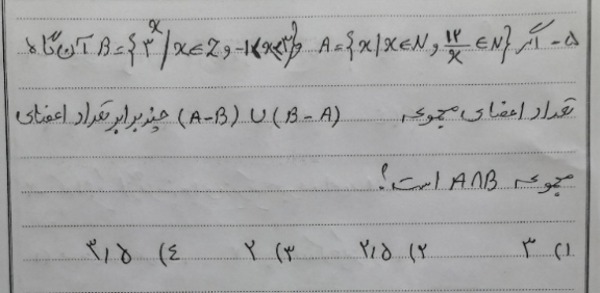 ۵- اگر A={x|x∈N و ۱۲/x ∈N} و B={۳^x/x∈Z و -۱<x<۳} آن گاه
تعداد اعضای مجموعه (A-B) ∪ (B-A) چند برابر تعداد اعضای
مجموعه A∩B است؟
۱) ۳ ۲) ۲/۵ ۳) ۲ ۴) ۳/۵